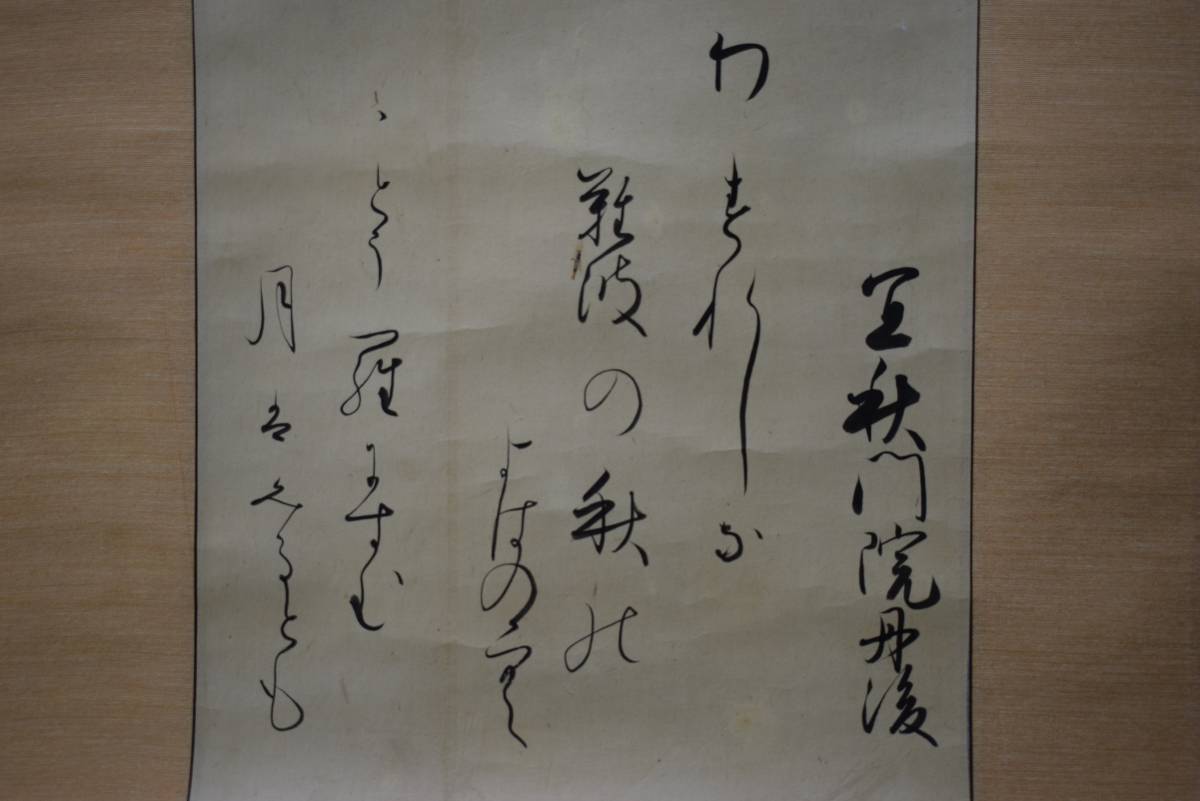 宜秋門院丹後
わすれしな
難波の秋の
よはの空
ことう羅にすむ
月は見るとも